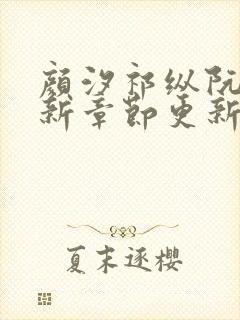 颜汐祁纵阮
新章节更新
夏末逐樱